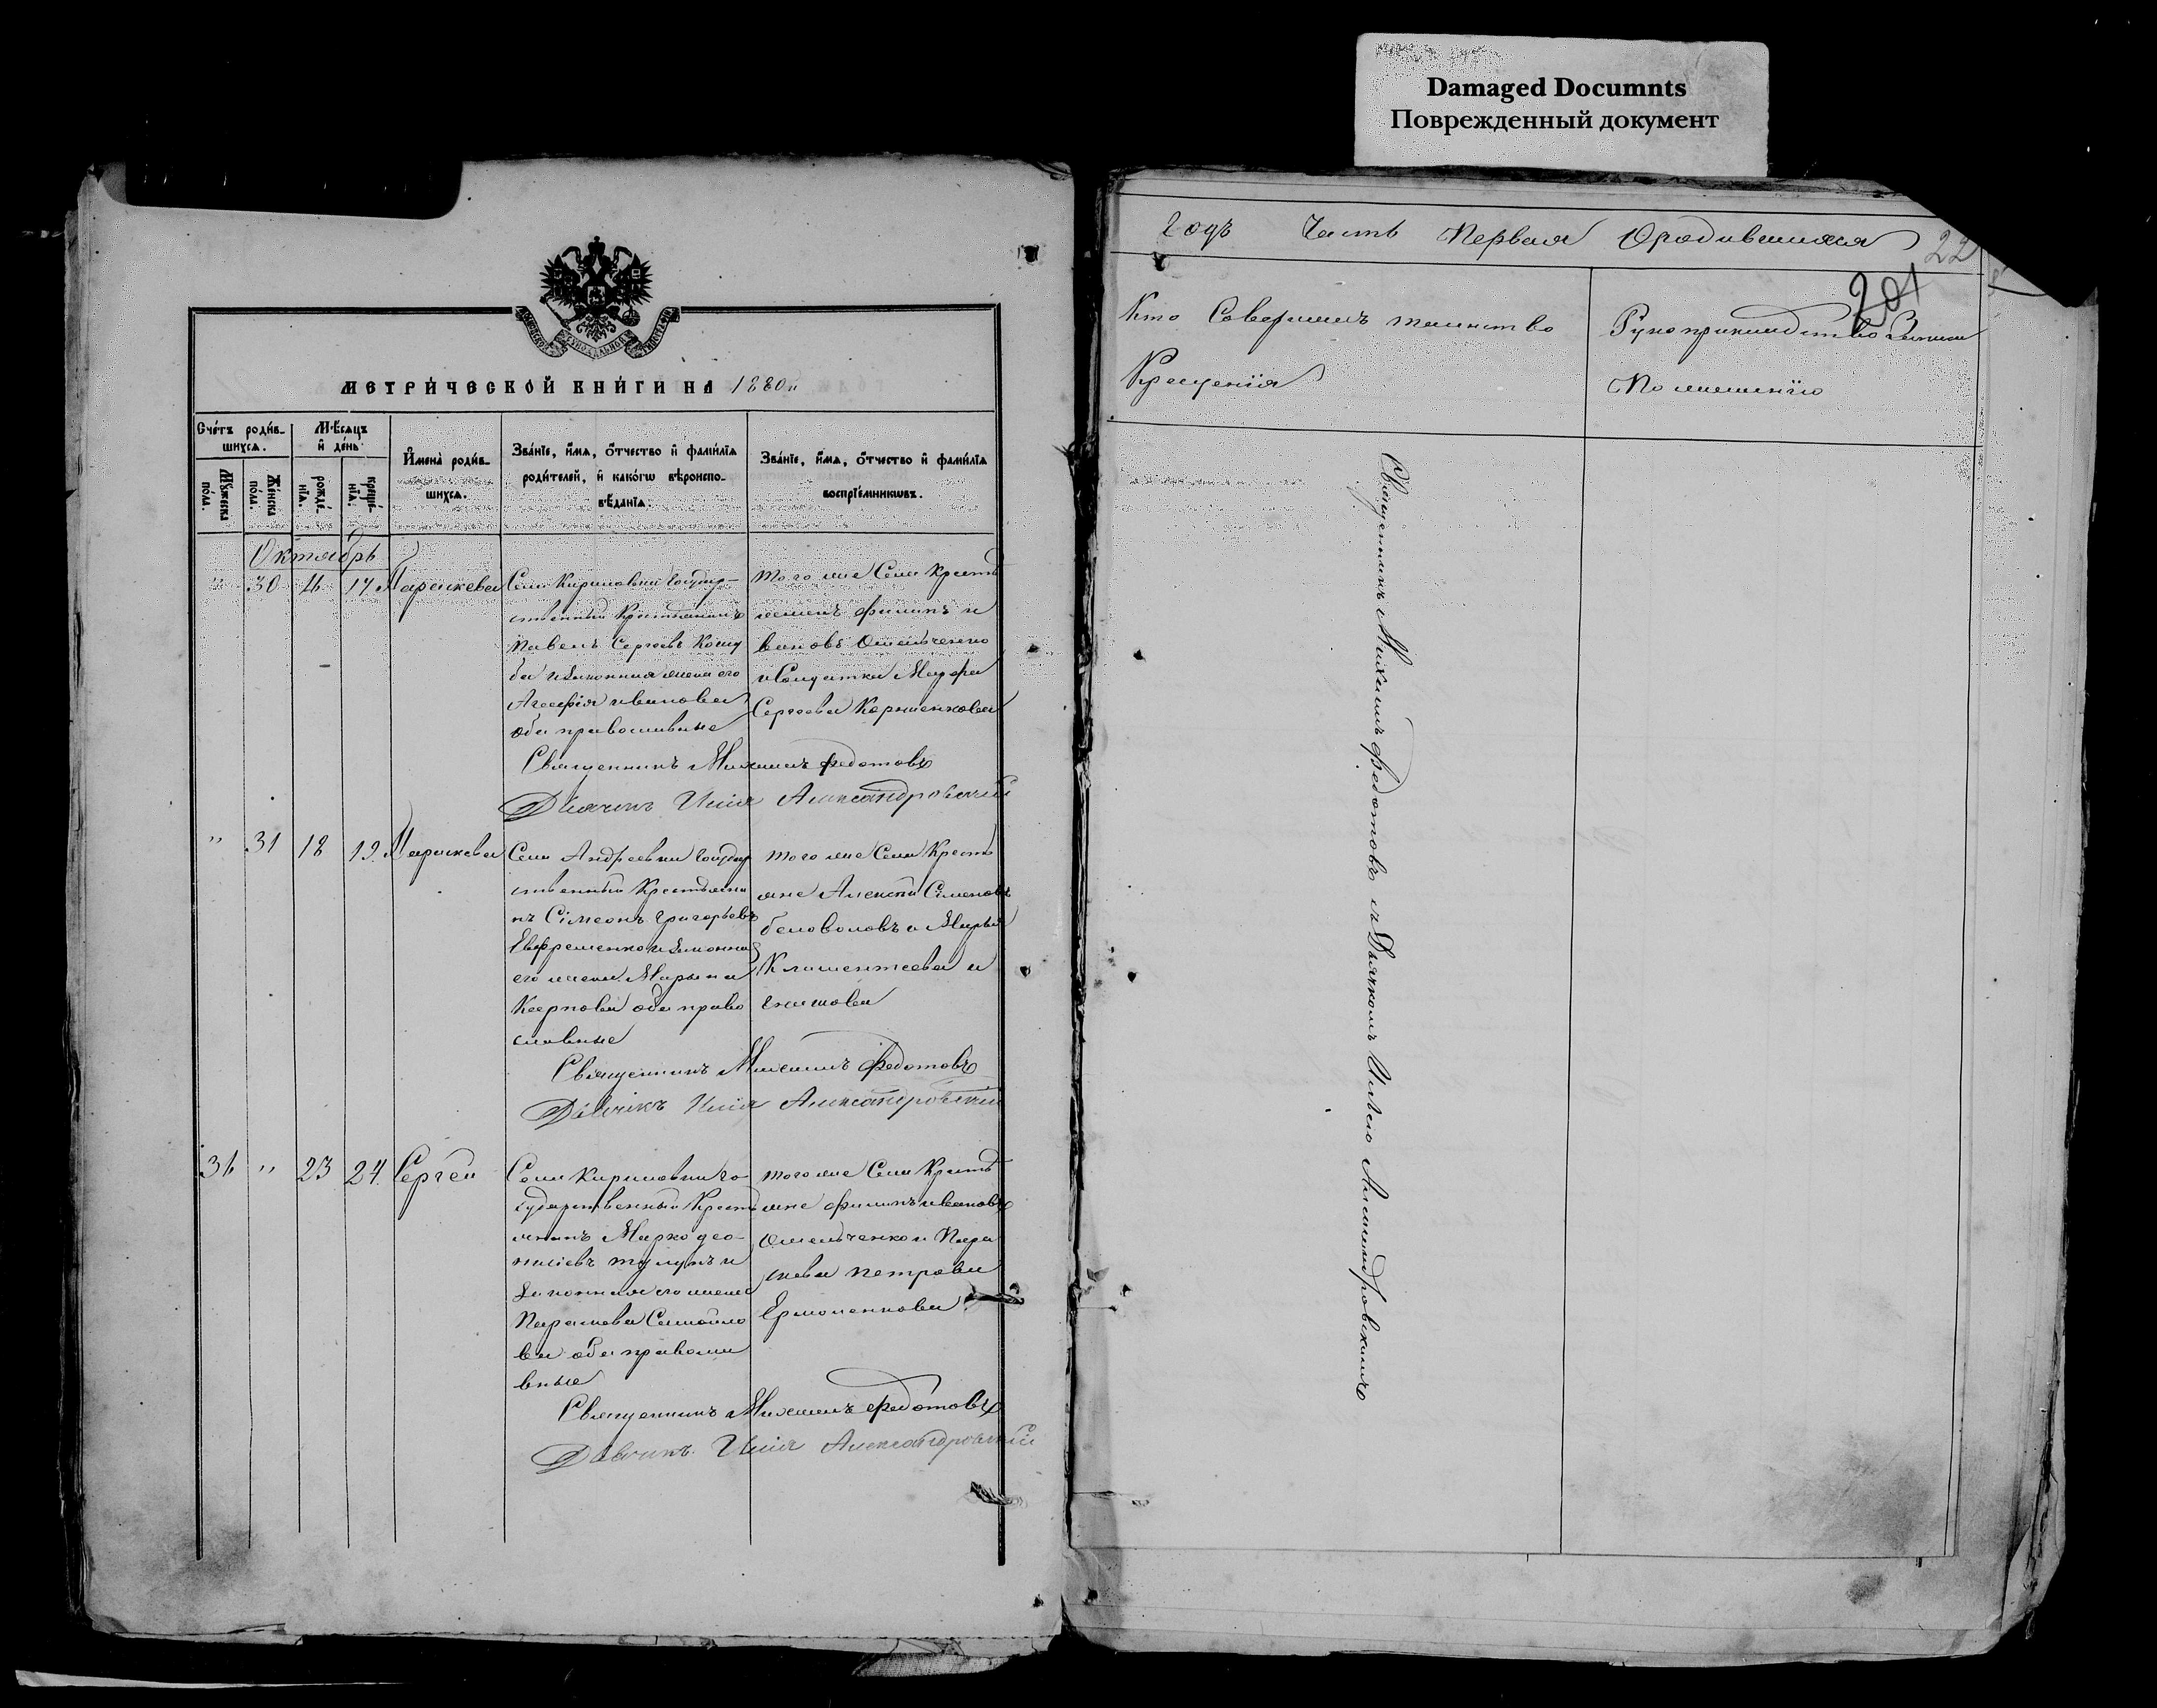 Damaged Documnts
Поврежденный документ
МОСКОВСКОЙ СѴНОДАЛЬНОЙ ТИПОГРАФІИ
МЕТРИ́ЧЕСКОЙ КНИ́ГИ НА 1880и
Сче́тъ роди́в-
шихсѧ.
Мꙋ́жеска по́ла.
Же́нска по́ла.
Мѣ́сѧцъ
и҆ де́нь
рожде́-
нїѧ.
креще́-
нїѧ.
И҆мена̀ роди́в-
шихсѧ.
Зва́нїе, и҆́мѧ, ѻ҆́тчество и҆ фами́лїѧ
роди́телей, и҆ како́гѡ вѣроиспо-
вѣ́данїѧ.
Зва́нїе, и҆́мѧ, ѻ҆́тчество и҆ фами́лїѧ
воспрїе́мникѡвъ.
Октябрь
" 30 16 17 Параскева
Села Кириловки Государ-
ственный Крестьянинъ
Павелъ Сергѣевъ
законная жена его
Агафія иванова
оба православные
того же Села Крестья
филипъ и
вановъ Омельченко
и Солдатка
Сергѣева
Священникъ Михаилъ Федотовъ
Дьячикъ Илія Александровскій
" 31 18 19. Параскева
Села Андреевки Государ
ственный Крестьяни
нъ Сімеонъ Григорьевъ
Евфременко и законна
его жена Марына
Карпова оба право
славные
того же Села Кресть
яне Алексѣй Сіменовъ
беловоловъ и Марья
Климентеева и
Священникъ Михаилъ Федотовъ
Дьячікъ Илія Александровскій
31 " 23 24. Сергей
Села Кириловки го-
сударственный Крест
янинъ Марко део-
нисіевъ и
Законная его жена
Параскева Самойло
ва оба правосла
вные
того же Села Кресть
яне филипъ ивановъ
Омельченко и Пара
скева петрова
Ермоленкова
Священникъ Михаилъ Федотовъ
Дьячикъ. Илія Александровскій
Годъ Часть Первая О родившихся 22
201
Кто Совершалъ таинство
Крещенія
Рукоприкладство Записи
По желанію
Священникъ Михаилъ Федотовъ съ Дьячкомъ Ильею Александровскимъ